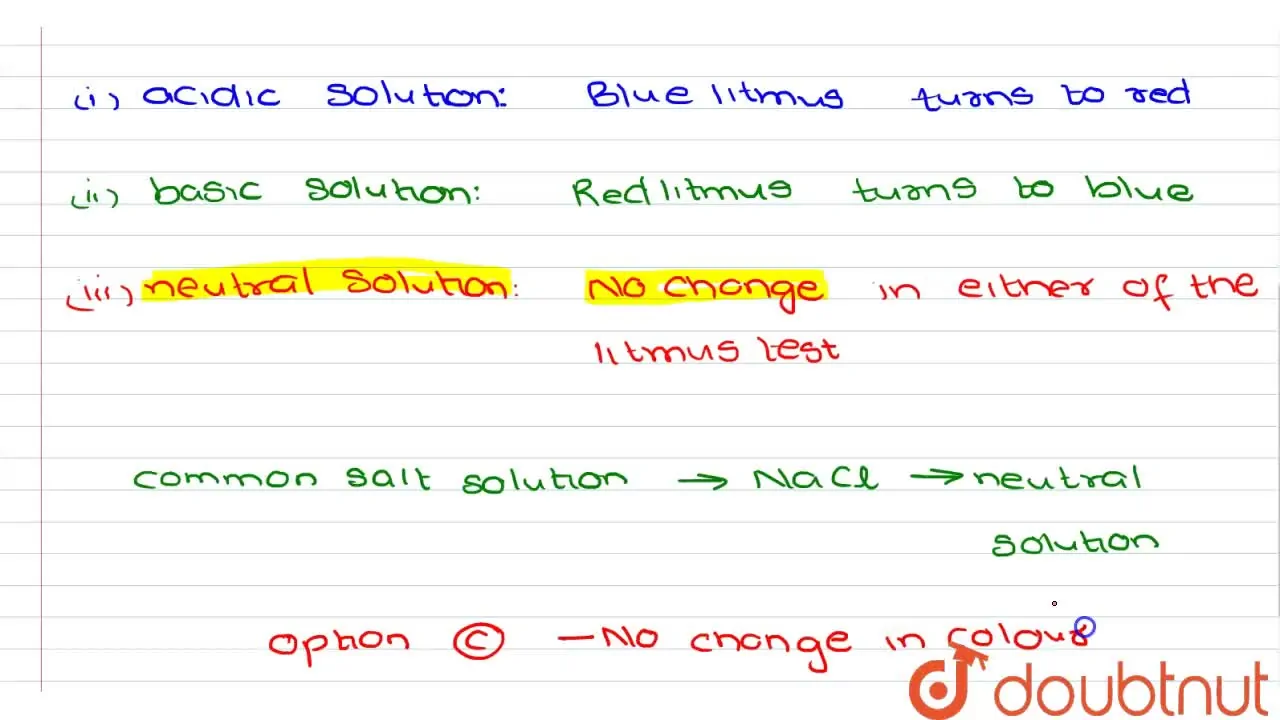 (i) acidic solution: Blue litmus turns to red
(ii) basic solution: Red litmus turns to blue
(iii) neutral solution: No change in either of the
litmus test
common salt solution → NaCl → neutral
solution
option Ⓒ — No change in colour
doubtnut